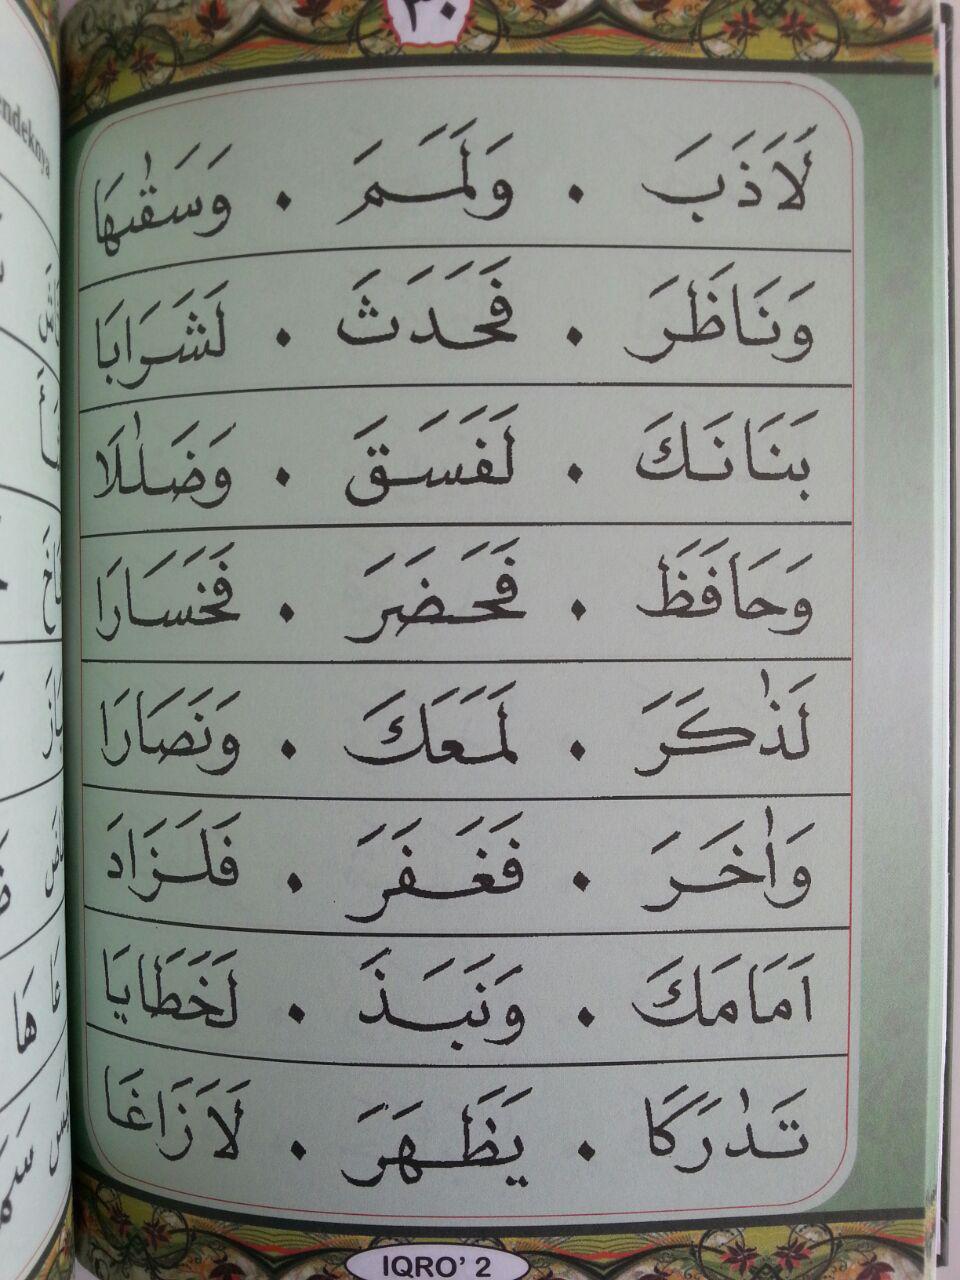 ٣٠
لَاَذَبَ . وَلَمَمَ . وَسَقٰىهَا
وَنَاظَرَ . فَحَدَثَ . لَشَرَابَا
بَنَانَكَ . لَفَسَقَ . وَضَلٰلَا
وَحَافَظَ . فَحَضَرَ . فَخَسَارَا
لَذٰكَرَ . لَمَعَكَ . وَنَصَارَا
وَاٰخَرَ . فَغَفَرَ . فَلَزَادَ
اَمَامَكَ . وَنَبَذَ . لَخَطَايَا
تَدٰرَكَا . يَظَهَرَ . لَازَاغَا
IQRO' 2